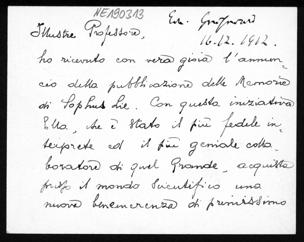 NE190313
16.12.1912.
Illustre Professore,
ho ricevuto con vera gioia l'annun-
cio della pubblicazione delle Memorie
di Sophus Lie. Con questa iniziativa
Ella, che è stato il più fedele in-
terprete ed il più geniale colla-
boratore di quel Grande, acquista
presso il mondo scientifico una
nuova benemerenza di primissimo